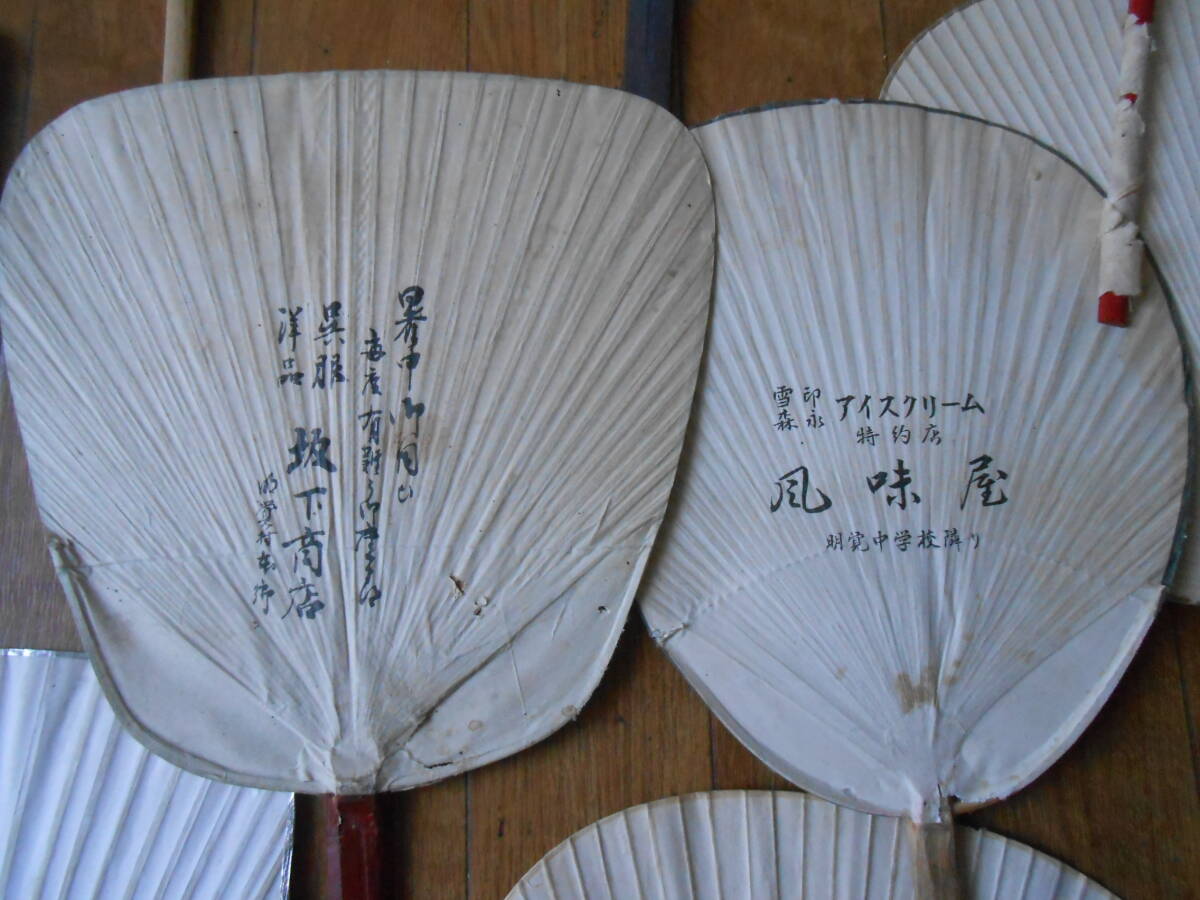 暑中御伺い
毎度有難く御座います
呉服
洋品
坂下商店
明覚村本郷
雪印 アイスクリーム
森永
特約店
風味屋
明覚中学校隣り